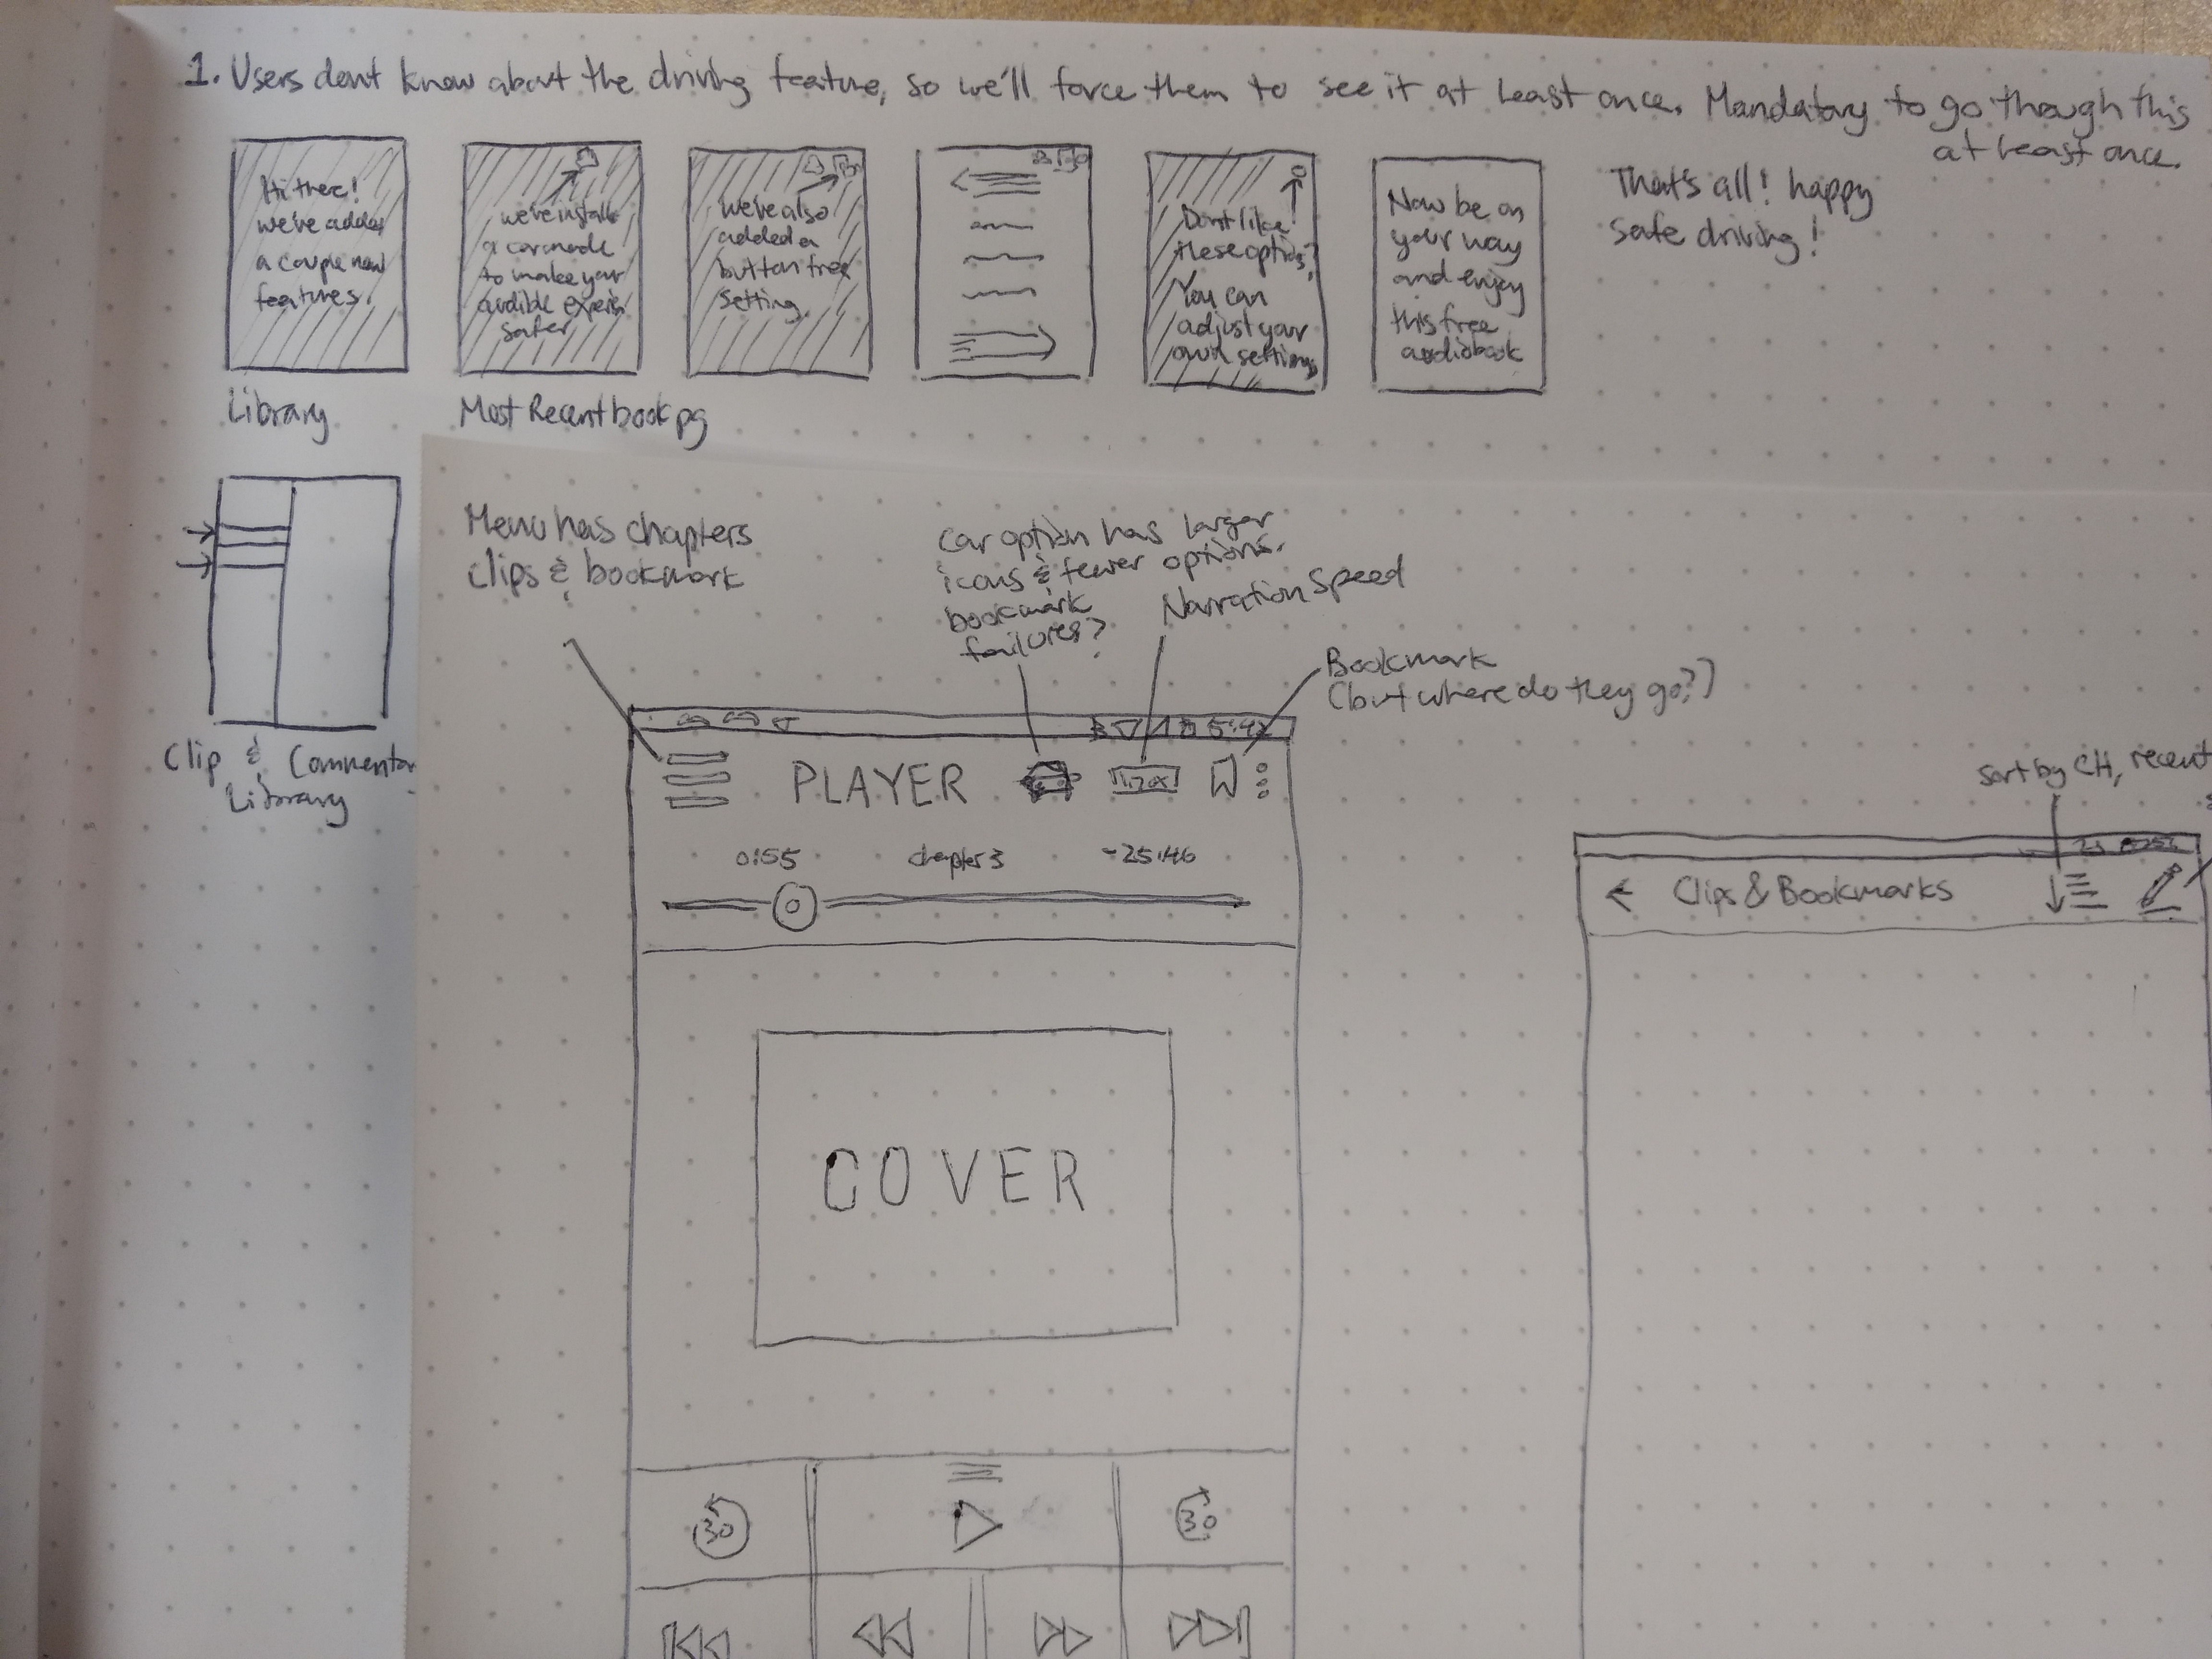 1. Users dont know about the driving feature, so we'll force them to see it at least once. Mandatory to go though this
at least once.
Hi there!
we've added
a couple new
features.
we've install
a car mode
to make your
audible experien
safer
we've also
added a
button free
setting.
Dont like
these options?
You can
adjust your
own settings
Now be on
your way
and enjoy
this free
audiobook
That's all! happy
safe driving!
Library
Most Recent book pg
Clip & Commentar
Library
Menu has chapters
clips & bookmark
car option has larger
icons & fewer options.
bookmark
failures?
Narration Speed
Bookmark
(but where do they go?)
5:42
PLAYER
0:55 chapter 3 -25:46
COVER
30
30
sort by CH, recent
Clips & Bookmarks